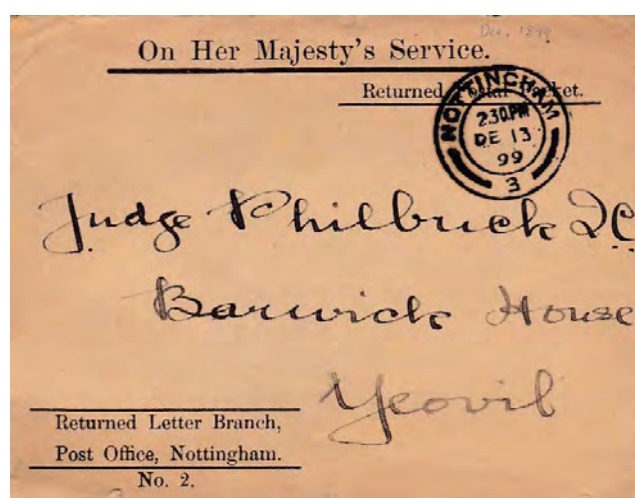 Dec. 1899
On Her Majesty's Service.
Returned Postal Packet.
NOTTINGHAM
2.30.PM
DE 13
99
3
Judge Philbrick QC
Barwick House
Yeovil
Returned Letter Branch,
Post Office, Nottingham.
No. 2.